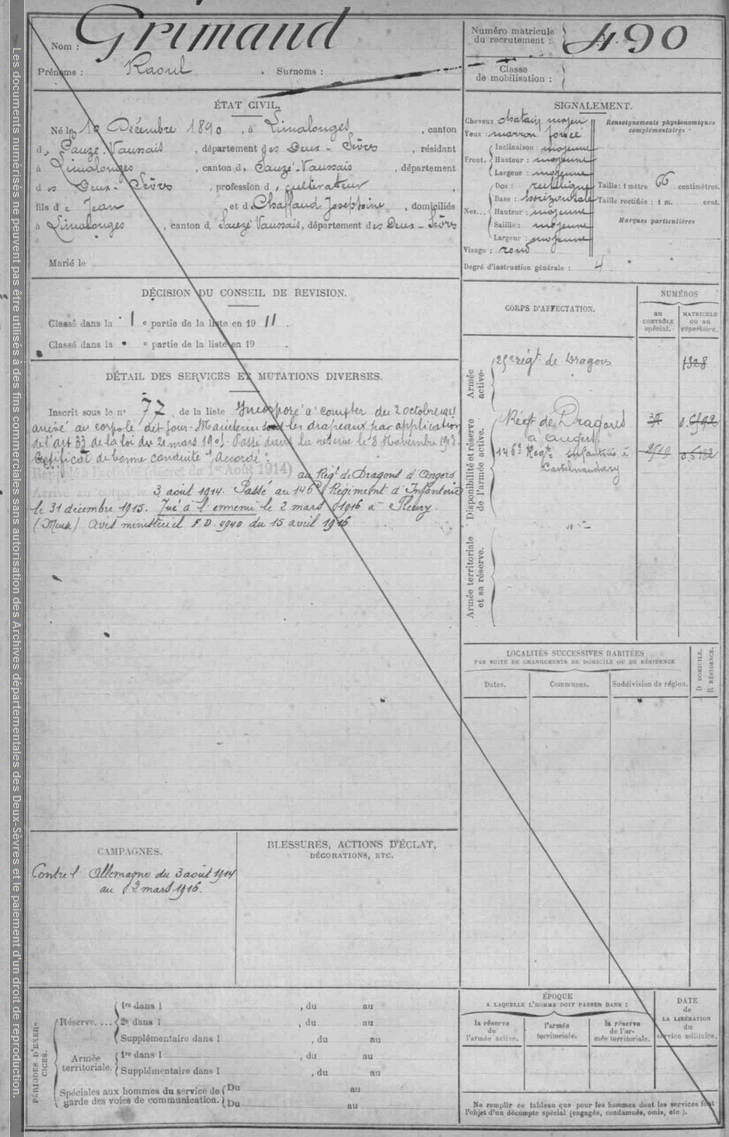 Les documents numérisés ne peuvent pas être utilisés à des fins commerciales sans autorisation des Archives départementales des Deux-Sèvres et le paiement d'un droit de reproduction.
Nom : Grimaud
Prénoms : Raoul . Surnoms :
Numéro matricule
du recrutement : 490
Classe
de mobilisation :
ÉTAT CIVIL.
Né le 10 Décembre 1890, à Limalonges, canton
de Sauzé-Vaussais, département des Deux-Sèvres, résidant
à Limalonges, canton de Sauzé-Vaussais, département
des Deux-Sèvres, profession de cultivateur
fils de Jean et de Chaffaud Joséphine, domiciliés
à Limalonges, canton de Sauzé-Vaussais, département des Deux-Sèvres
Marié le
SIGNALEMENT.
Cheveux châtain moyen
Yeux marron foncé
Front. Inclinaison : moyenne
Hauteur : moyenne
Largeur : moyenne
Nez... Dos : rectiligne
Base : horizontale
Hauteur : moyenne
Saillie : moyenne
Largeur : moyenne
Visage : rond
Renseignements physionomiques
complémentaires :
Taille : 1 mètre 66 centimètres.
Taille rectifiée : 1 m. cent.
Marques particulières
Degré d'instruction générale : 4
DÉCISION DU CONSEIL DE REVISION.
Classé dans la 1 e partie de la liste en 1911.
Classé dans la e partie de la liste en 19 .
DÉTAIL DES SERVICES ET MUTATIONS DIVERSES.
Inscrit sous le n° 77 de la liste Incorporé à compter du 2 octobre 1911
arrivé au corps le dit jour. Maintenu sous les drapeaux par application
de l'art 33 de la loi du 21 mars 1905. Passé dans la réserve le 8 Novembre
Certificat de bonne conduite "Accordé".
1er Août 1914) au Régt de Dragons d'Angers
3 août 1914. Passé au 146e Régiment d'Infanterie
le 31 décembre 1915. Tué à l'ennemi le 2 mars 1916 à Fleury
(Meuse) Avis ministériel F.D. 2940 du 15 avril 1916
CORPS D'AFFECTATION.
NUMÉROS
au
CONTRÔLE
spécial.
MATRICULE
ou au
répertoire.
Armée
active.
25e régt de Dragons
1328
Disponibilité et réserve
de l'armée active.
Régt de Dragons
à Angers
146e Régt infanterie à
Castelnaudary
Armée territoriale
et sa réserve.
LOCALITÉS SUCCESSIVES HABITÉES
PAR SUITE DE CHANGEMENTS DE DOMICILE OU DE RÉSIDENCE
Dates.
Communes.
Subdivision de région.
D DOMICILE.
R RÉSIDENCE.
CAMPAGNES.
Contre l'Allemagne du 3 août 1914
au 2 mars 1916.
BLESSURES, ACTIONS D'ÉCLAT,
DÉCORATIONS, ETC.
PÉRIODES D'EXERCICES.
Réserve.... 1re dans l , du au
2e dans l , du au
Supplémentaire dans l , du au
Armée
territoriale. 1re dans l , du au
Supplémentaire dans l , du au
Spéciales aux hommes du service de
garde des voies de communication. Du au
Du au
ÉPOQUE
A LAQUELLE L'HOMME DOIT PASSER DANS :
la réserve
de l'armée active.
l'armée
territoriale.
la réserve
de l'armée territoriale.
DATE
de
LA LIBÉRATION
du
service militaire.
Ne remplir ce tableau que pour les hommes dont les services font
l'objet d'un décompte spécial (engagés, condamnés, omis, etc.).